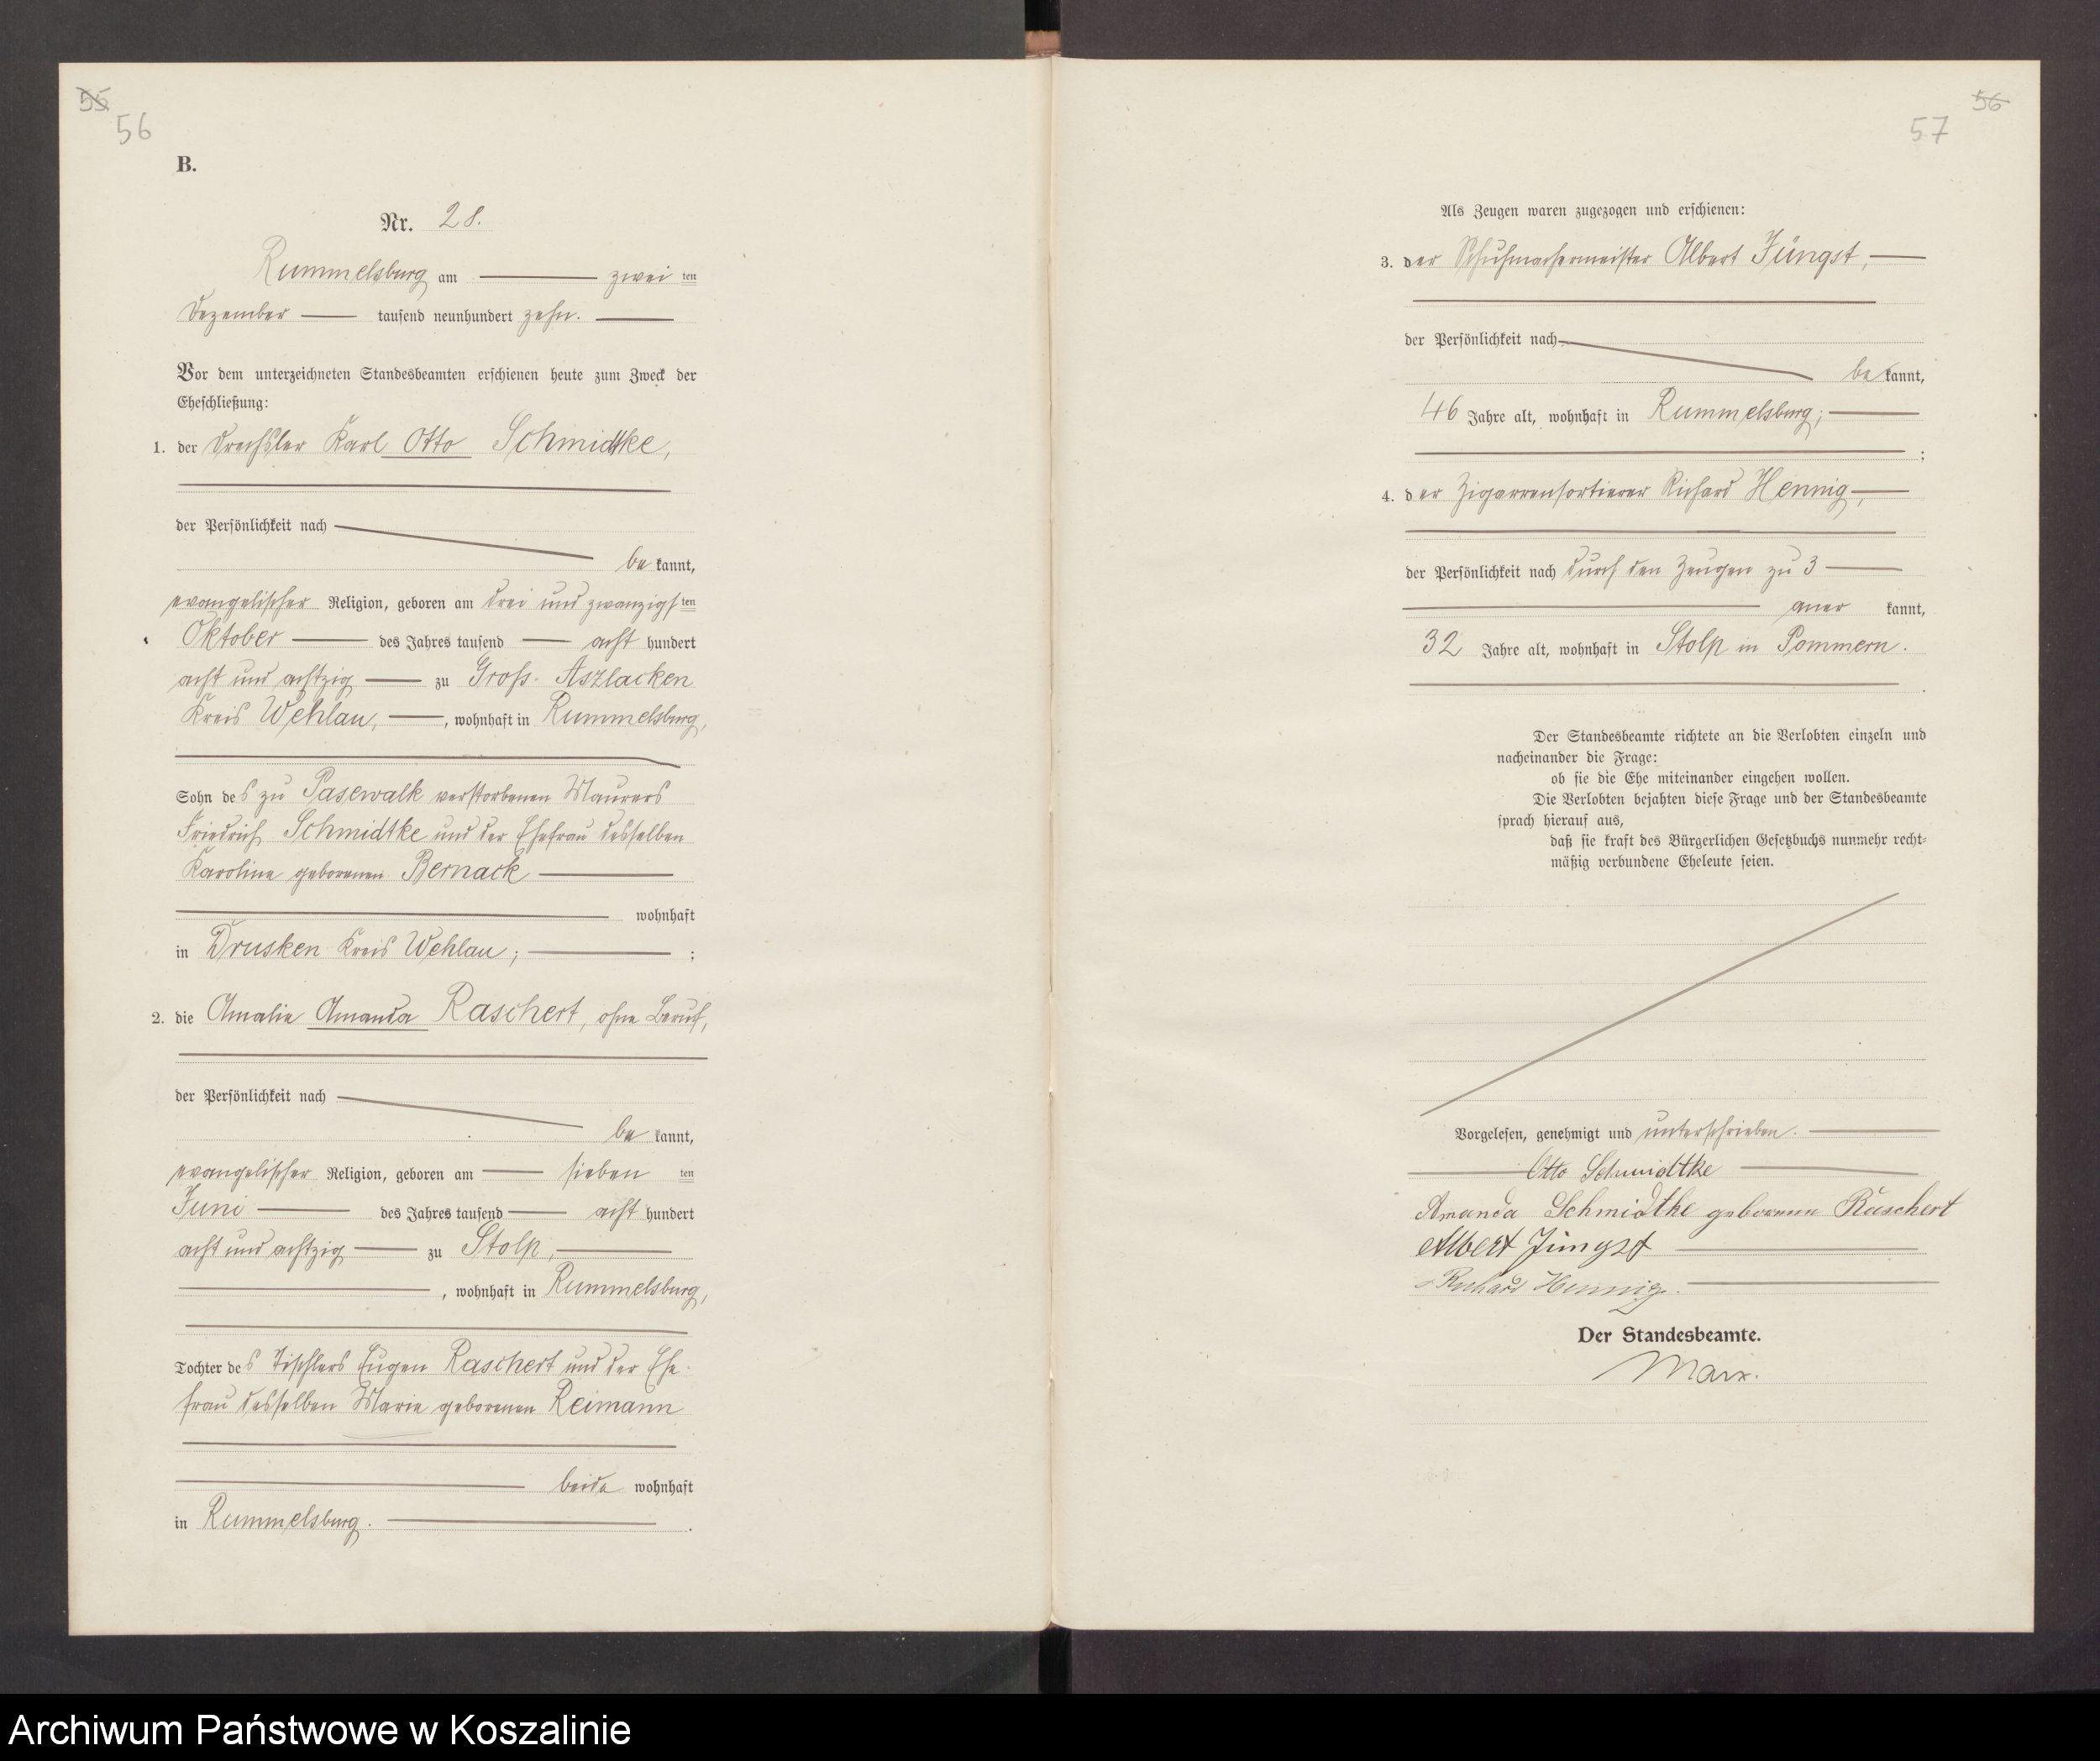 55
56
B.
Nr. 28.
Rummelsburg am zwei ten
Dezember tausend neunhundert zehn.
Vor dem unterzeichneten Standesbeamten erschienen heute zum Zweck der
Eheschließung:
1. der Drechsler Karl Otto Schmidtke,
der Persönlichkeit nach
be kannt,
evangelischer Religion, geboren am drei und zwanzigsten
Oktober des Jahres tausend acht hundert
acht und achtzig zu Groß-Aszlacken
Kreis Wehlau, , wohnhaft in Rummelsburg,
Sohn des zu Pasewalk verstorbenen Maurers
Friedrich Schmidtke und der Ehefrau desselben
Karoline geborenen Bernack
wohnhaft
in Drusken Kreis Wehlau; ;
2. die Amalie Amanda Raschert, ohne Beruf,
der Persönlichkeit nach
be kannt,
evangelischer Religion, geboren am sieben ten
Juni des Jahres tausend acht hundert
acht und achtzig zu Stolp,
, wohnhaft in Rummelsburg,
Tochter des Tischlers Eugen Raschert und der Ehe-
frau desselben Marie geborenen Reimann
beide wohnhaft
in Rummelsburg. .
56
57
Als Zeugen waren zugezogen und erschienen:
3. der Schuhmachermeister Albert Jüngst,
der Persönlichkeit nach
be kannt,
46 Jahre alt, wohnhaft in Rummelsburg;
;
4. der Zigarrensortierer Richard Hennig,
der Persönlichkeit nach durch den Zeugen zu 3
aner kannt,
32 Jahre alt, wohnhaft in Stolp in Pommern.
.
Der Standesbeamte richtete an die Verlobten einzeln und
nacheinander die Frage:
ob sie die Ehe miteinander eingehen wollen.
Die Verlobten bejahten diese Frage und der Standesbeamte
sprach hierauf aus,
daß sie kraft des Bürgerlichen Gesetzbuchs nunmehr recht-
mäßig verbundene Eheleute seien.
Vorgelesen, genehmigt und unterschrieben.
Otto Schmidtke
Amanda Schmidtke geborenen Raschert
Albert Jüngst
Richard Hennig.
Der Standesbeamte.
Marx.
Archiwum Państwowe w Koszalinie